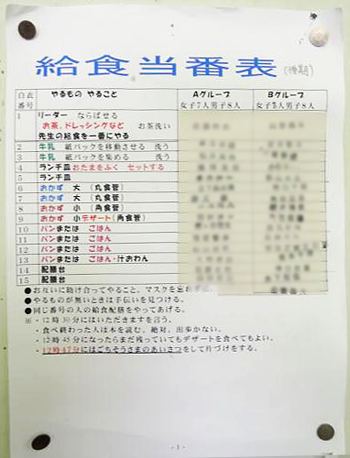 給食当番表(後期)
白衣番号 やるもの やること Aグループ 女子7人男子8人 Bグループ 女子7人男子8人
1 リーダー ならばせる
お茶、ドレッシングなど お茶洗い
先生の給食を一番にやる
2 牛乳 紙パックを移動させる 洗う
3 牛乳 紙パックを集める 洗う
4 ランチ皿 おたまをふく セットする
5 ランチ皿
6 おかず 大 (丸食管)
7 おかず 大 (丸食管)
8 おかず 小 (角食管)
9 おかず 小 デザート(角食管)
10 パンまたは ごはん
11 パンまたは ごはん
12 パンまたは ごはん
13 パンまたは ごはん・汁おわん
14 配膳台
15 配膳台
●お互いに助け合ってやること。マスクを忘れ
●やるものが無いときは手伝いを見つける。
●同じ番号の人の給食配膳をやってあげる。
※・12時30分にはいただきますを言う。
・食べ終わった人は本を読む。絶対、出歩かない。
・12時45分になったらまだ残っていてもデザートを食べてもよい。
・12時47分にはごちそうさまのあいさつをして片づけをする。
- 1 -